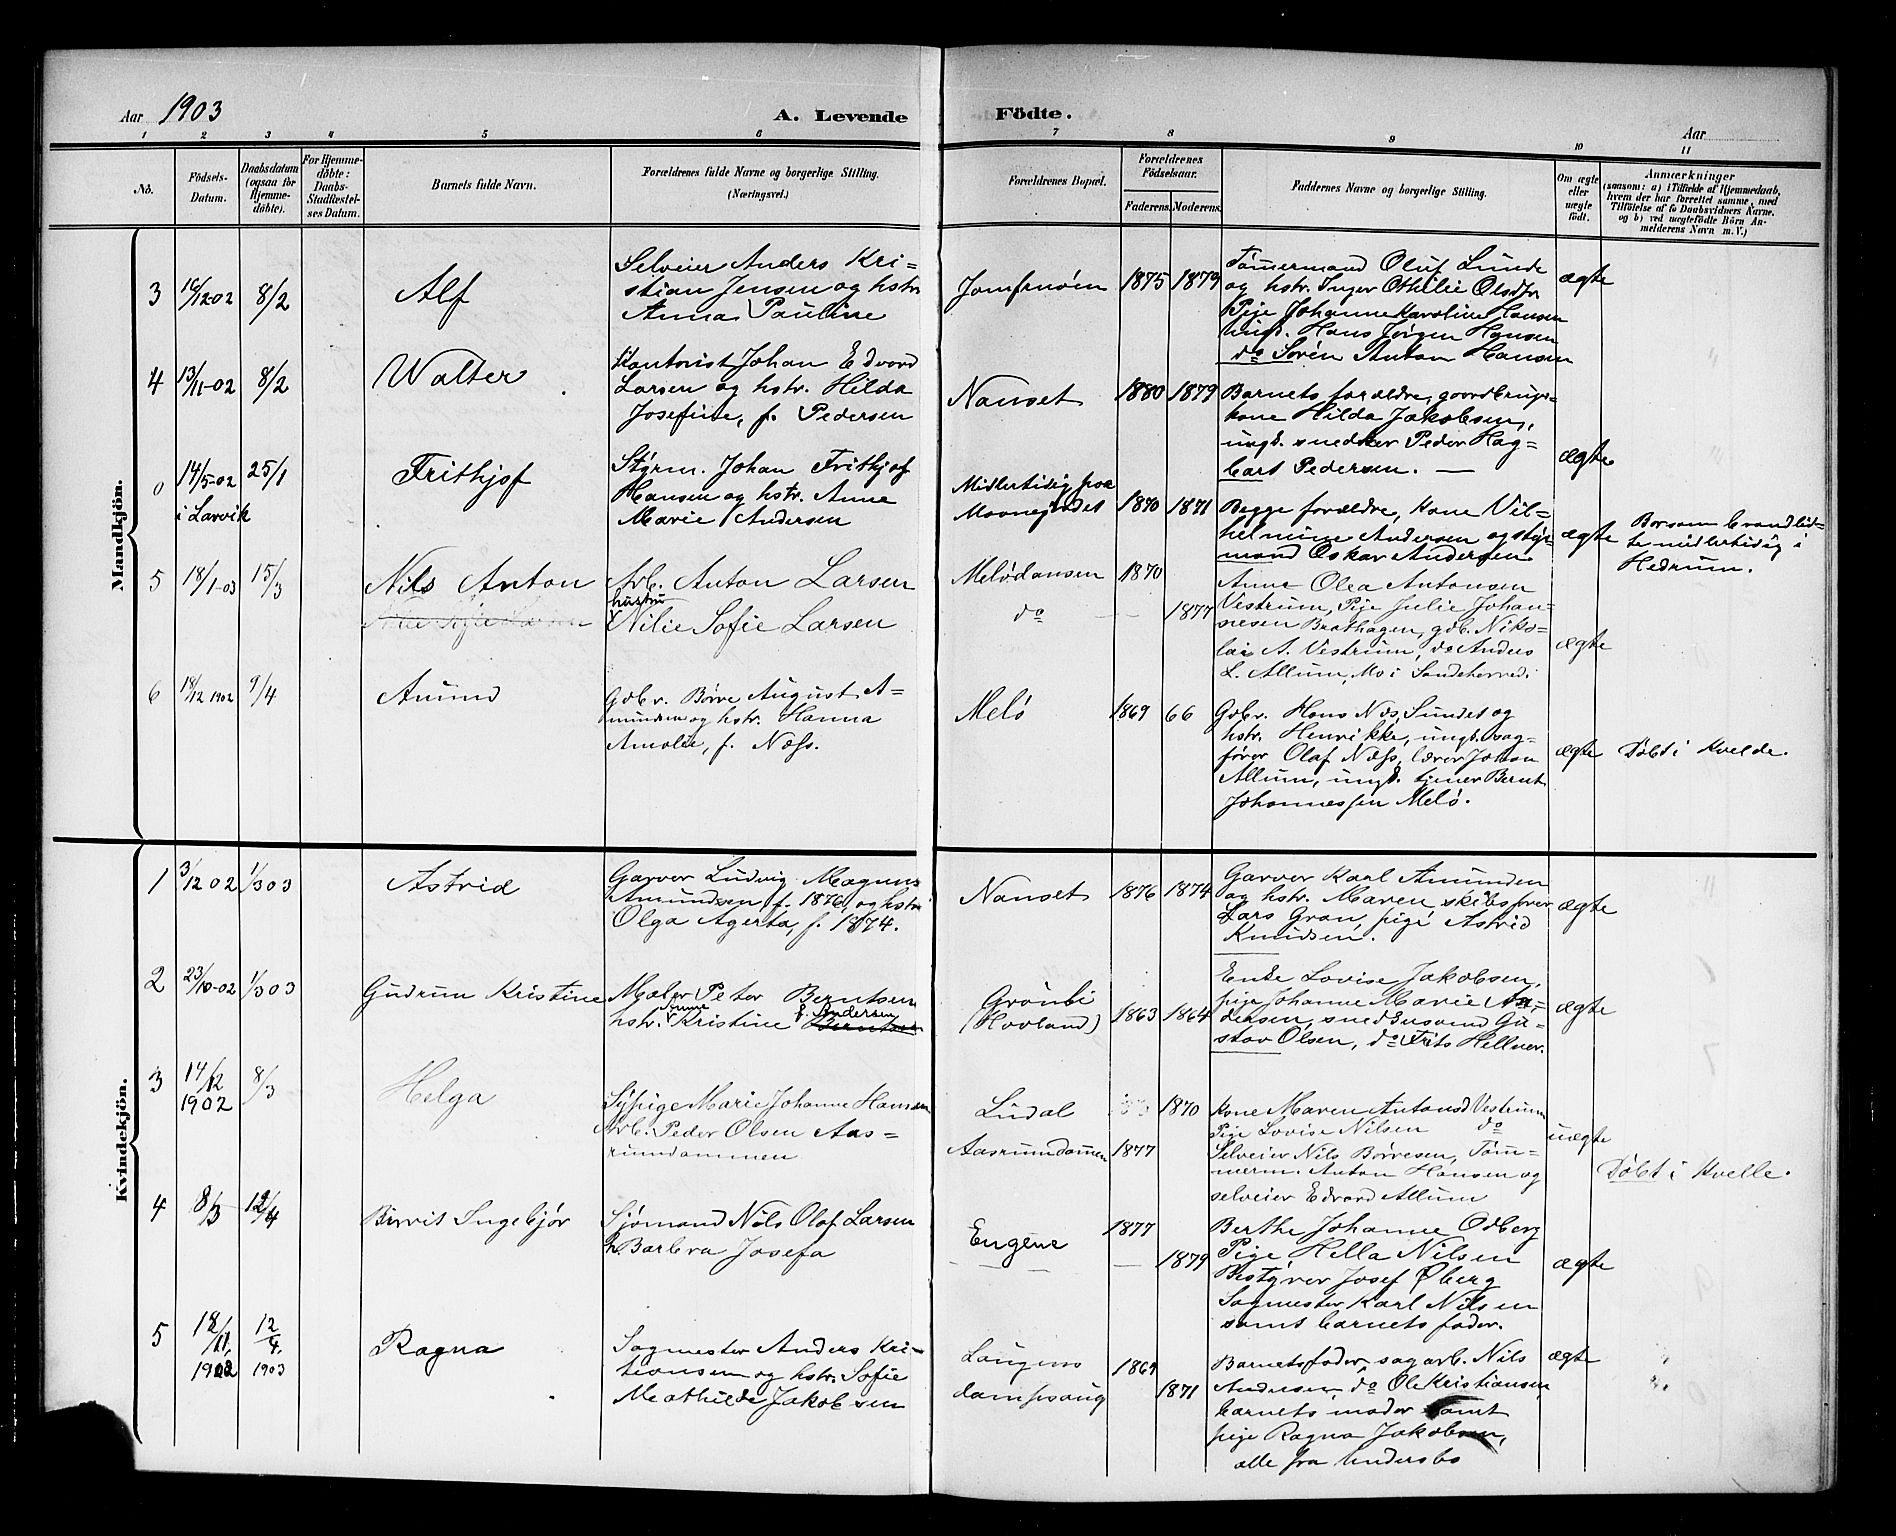 Aar 1903
A. Levende
Födte.
Aar
1 2 3 4 5 6 7 8 9 10 11
No.
Födsels-
Datum.
Daabsdatum
(ogsaa for
Hjemme-
döbte).
For Hjemme-
döbte:
Daabs-
Stadfæstel-
ses Datum.
Barnets fulde Navn.
Forældrenes fulde Navne og borgerlige Stilling.
(Næringsvei.)
Forældrenes Bopæl.
Forældrenes
Födselsaar.
Faderens. Moderens.
Faddernes Navne og borgerlige Stilling.
Om ægte
eller
uægte
født.
Anmærkninger
(saasom: a) i Tilfælde af Hjemmedaab,
hvem der har forrettet samme, med
Tilföielse af to Daabsvidners Navne.
og b) ved uægtefödte Börn An-
melderens Navn m. V.)
Mandkjön.
3 16/12-02 8/2 Alf
Selveier Anders Kri-
stian Jensen og hstr
Anna Pauline
Jomfruöen 1875 1879
Tömmermand Oluf Lunde
og hstr. Inger Othilie Olsdtr
Pige Johanne Karoline Hansen
ungk. Hans Jörgen Hansen
do Sören Anton Hansen
ægte
4 13/11-02 8/2 Walter
Kontorist Johan Edvard
Larsen og hstr. Hilda
Josefine, f. Pedersen
Nanset 1880 1879
Barnets forældre, gaardbrugs-
kone Hilda Jakobsen,
ungk. snedker Peder Hag-
bart Pedersen. —
ægte
0 14/5-02 25/1 Frithjof
i Larvik
Styrm. Johan Frithjof
Hansen og hstr. Anne
Marie Andersen
Midlertidig paa
1870 1871
Begge forældre, kone Vil-
helmine Andersen og styr-
mand Oskar Andersen
ægte
Borsom brandlid-
te midlertidig i
Hedrum.
5 18/1-03 15/3 Nils Anton
Arb. Anton Larsen
hustru
Nilie Sofie Larsen
Melödansen 1870
do — 1877
Anne Olea Antonsen
Vestrum, Pige Julie Johan-
nesen Brathagen, gdb. Niko-
lai A. Vestrum, do Anders
L. Allum, Mo i Sandeherred.
ægte
6 18/12 1902 9/4 Amund
Gdbr. Börre August A-
mundsen og hstr. Hanna
Amalie, f. Næss.
Melö 1869 66
Gdbr. Hans Næs, Sundet og
hstr. Henrikke, ungk. sag-
förer Olaf Næss, lærer Johan
Allum, ungk. tjener Bernt
Johannessen Melö.
ægte
Döbt i Kvelde.
Kvindekjön.
1 3/12 02 1/3 03 Astrid
Garver Ludvig Magnus
Amundsen f. 1876, og hstr
Olga Agerta, f. 1874.
Nanset 1876 1874
Garver Karl Amundsen
og hstr. Maren skibsförer
Lars Gran, pige Astrid
Knudsen.
ægte
2 23/10-02 1/3 03 Gudrun Kristine
Maler Peter Berntsen
hstr. Anne Kristine f. Andersen
Grönli
(Hovland) 1863 1864
Enke Lovise Jakobsen,
pige Johanne Marie An-
dersen, snedkersvend Gu-
stav Olsen, do Frits Hellner.
ægte
3 14/12 1902 8/3 Helga
Sypige Marie Johanne Hansen
Arb. Peder Olsen Aas-
rumdammen
Lüdal 1870
Aasrumdammen 1877
Kone Maren Antonsd Vestrum
Pige Lovise Nilsen do
Selveier Nils Börresen, Töm-
merm. Anton Hansen og
selveier Edvard Allum
uægte
Döbt i Kvelle.
4 8/3 12/4 Birvit Ingebjör
Sjömand Nils Olaf Larsen
h. Barbra Josefa
Engene 1877
— 1879
Berthe Johanne Odberg
Pige Hella Nilsen
Bestyrer Josef Öberg
Sagmester Karl Nilsen
samt barnets fader.
ægte
5 18/11, 1902 12/4. 1903 Ragna
Sagmester Anders Kri-
tiansen og hstr. Sofie
Mathilde Jakobsen
Laugens
dampsaug 1869
1871
Barnets fader, sagarb. Nils
Andersen, do Ole Kristiansen
barnets moder samt
pige Ragna Jakobsen,
alle fra Undersbo
ægte